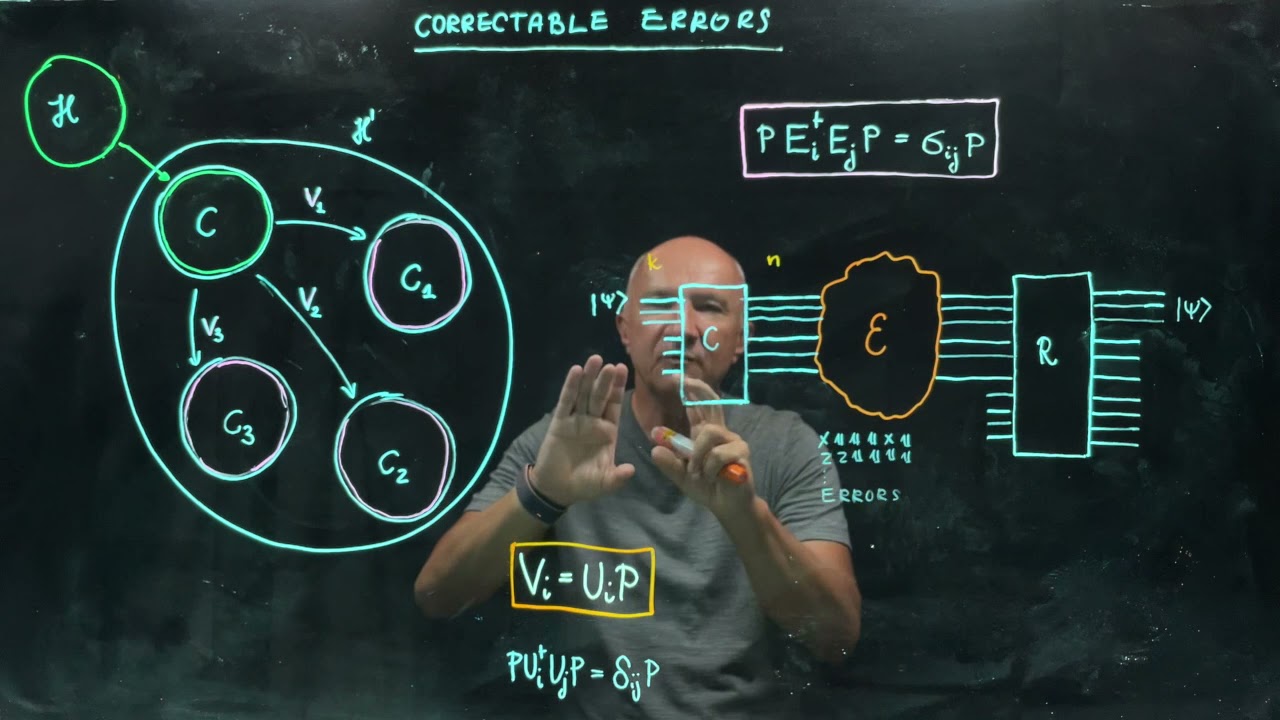 CORRECTABLE ERRORS
ℋ
ℋ'
C
V₁
C₁
V₂
C₂
V₃
C₃
P Eᵢ† Eⱼ P = σᵢⱼ P
k
n
|Ψ⟩
C
ℰ
R
|Ψ⟩
X 𝟙 𝟙 𝟙 X 𝟙
Z Z 𝟙 𝟙 𝟙 𝟙
ERRORS
Vᵢ = Uᵢ P
P Uᵢ† Uⱼ P = δᵢⱼ P